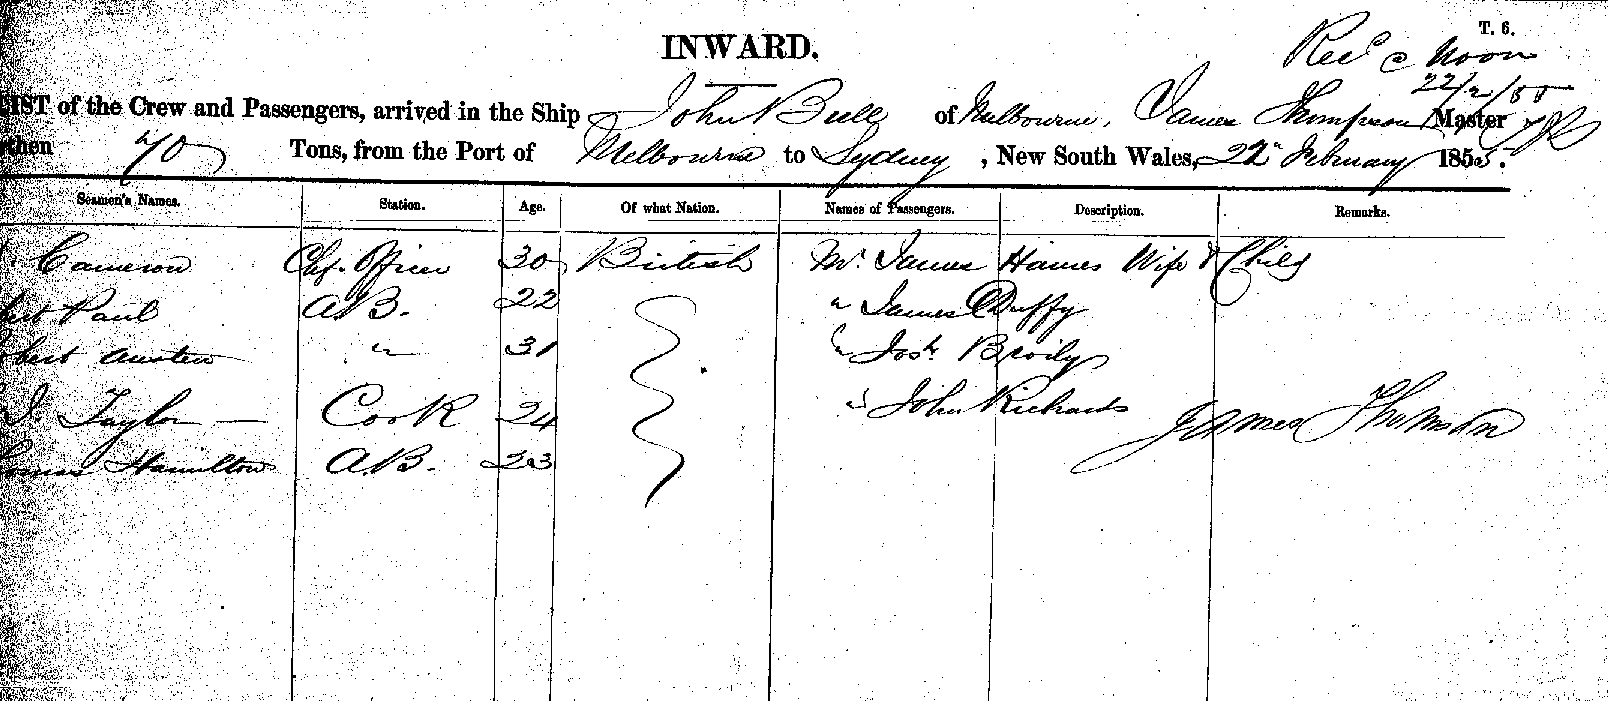 T. 6.
INWARD.
Recd @ Noon
22/2/55
LIST of the Crew and Passengers, arrived in the Ship John Bull of Melbourne, James Thompson Master
then 70 Tons, from the Port of Melbourne to Sydney, New South Wales, 22nd February 1855.
Seamen's Names. Station. Age. Of what Nation. Names of Passengers. Description. Remarks.
Cameron Chf. Officer 30 British Mr. James Haines Wife & Child
Paul AB. 22 " James Duffy
Austen " 31 " Josh Broily
Taylor — Cook 24 " John Richards
Hamilton AB. 23
James Thomson